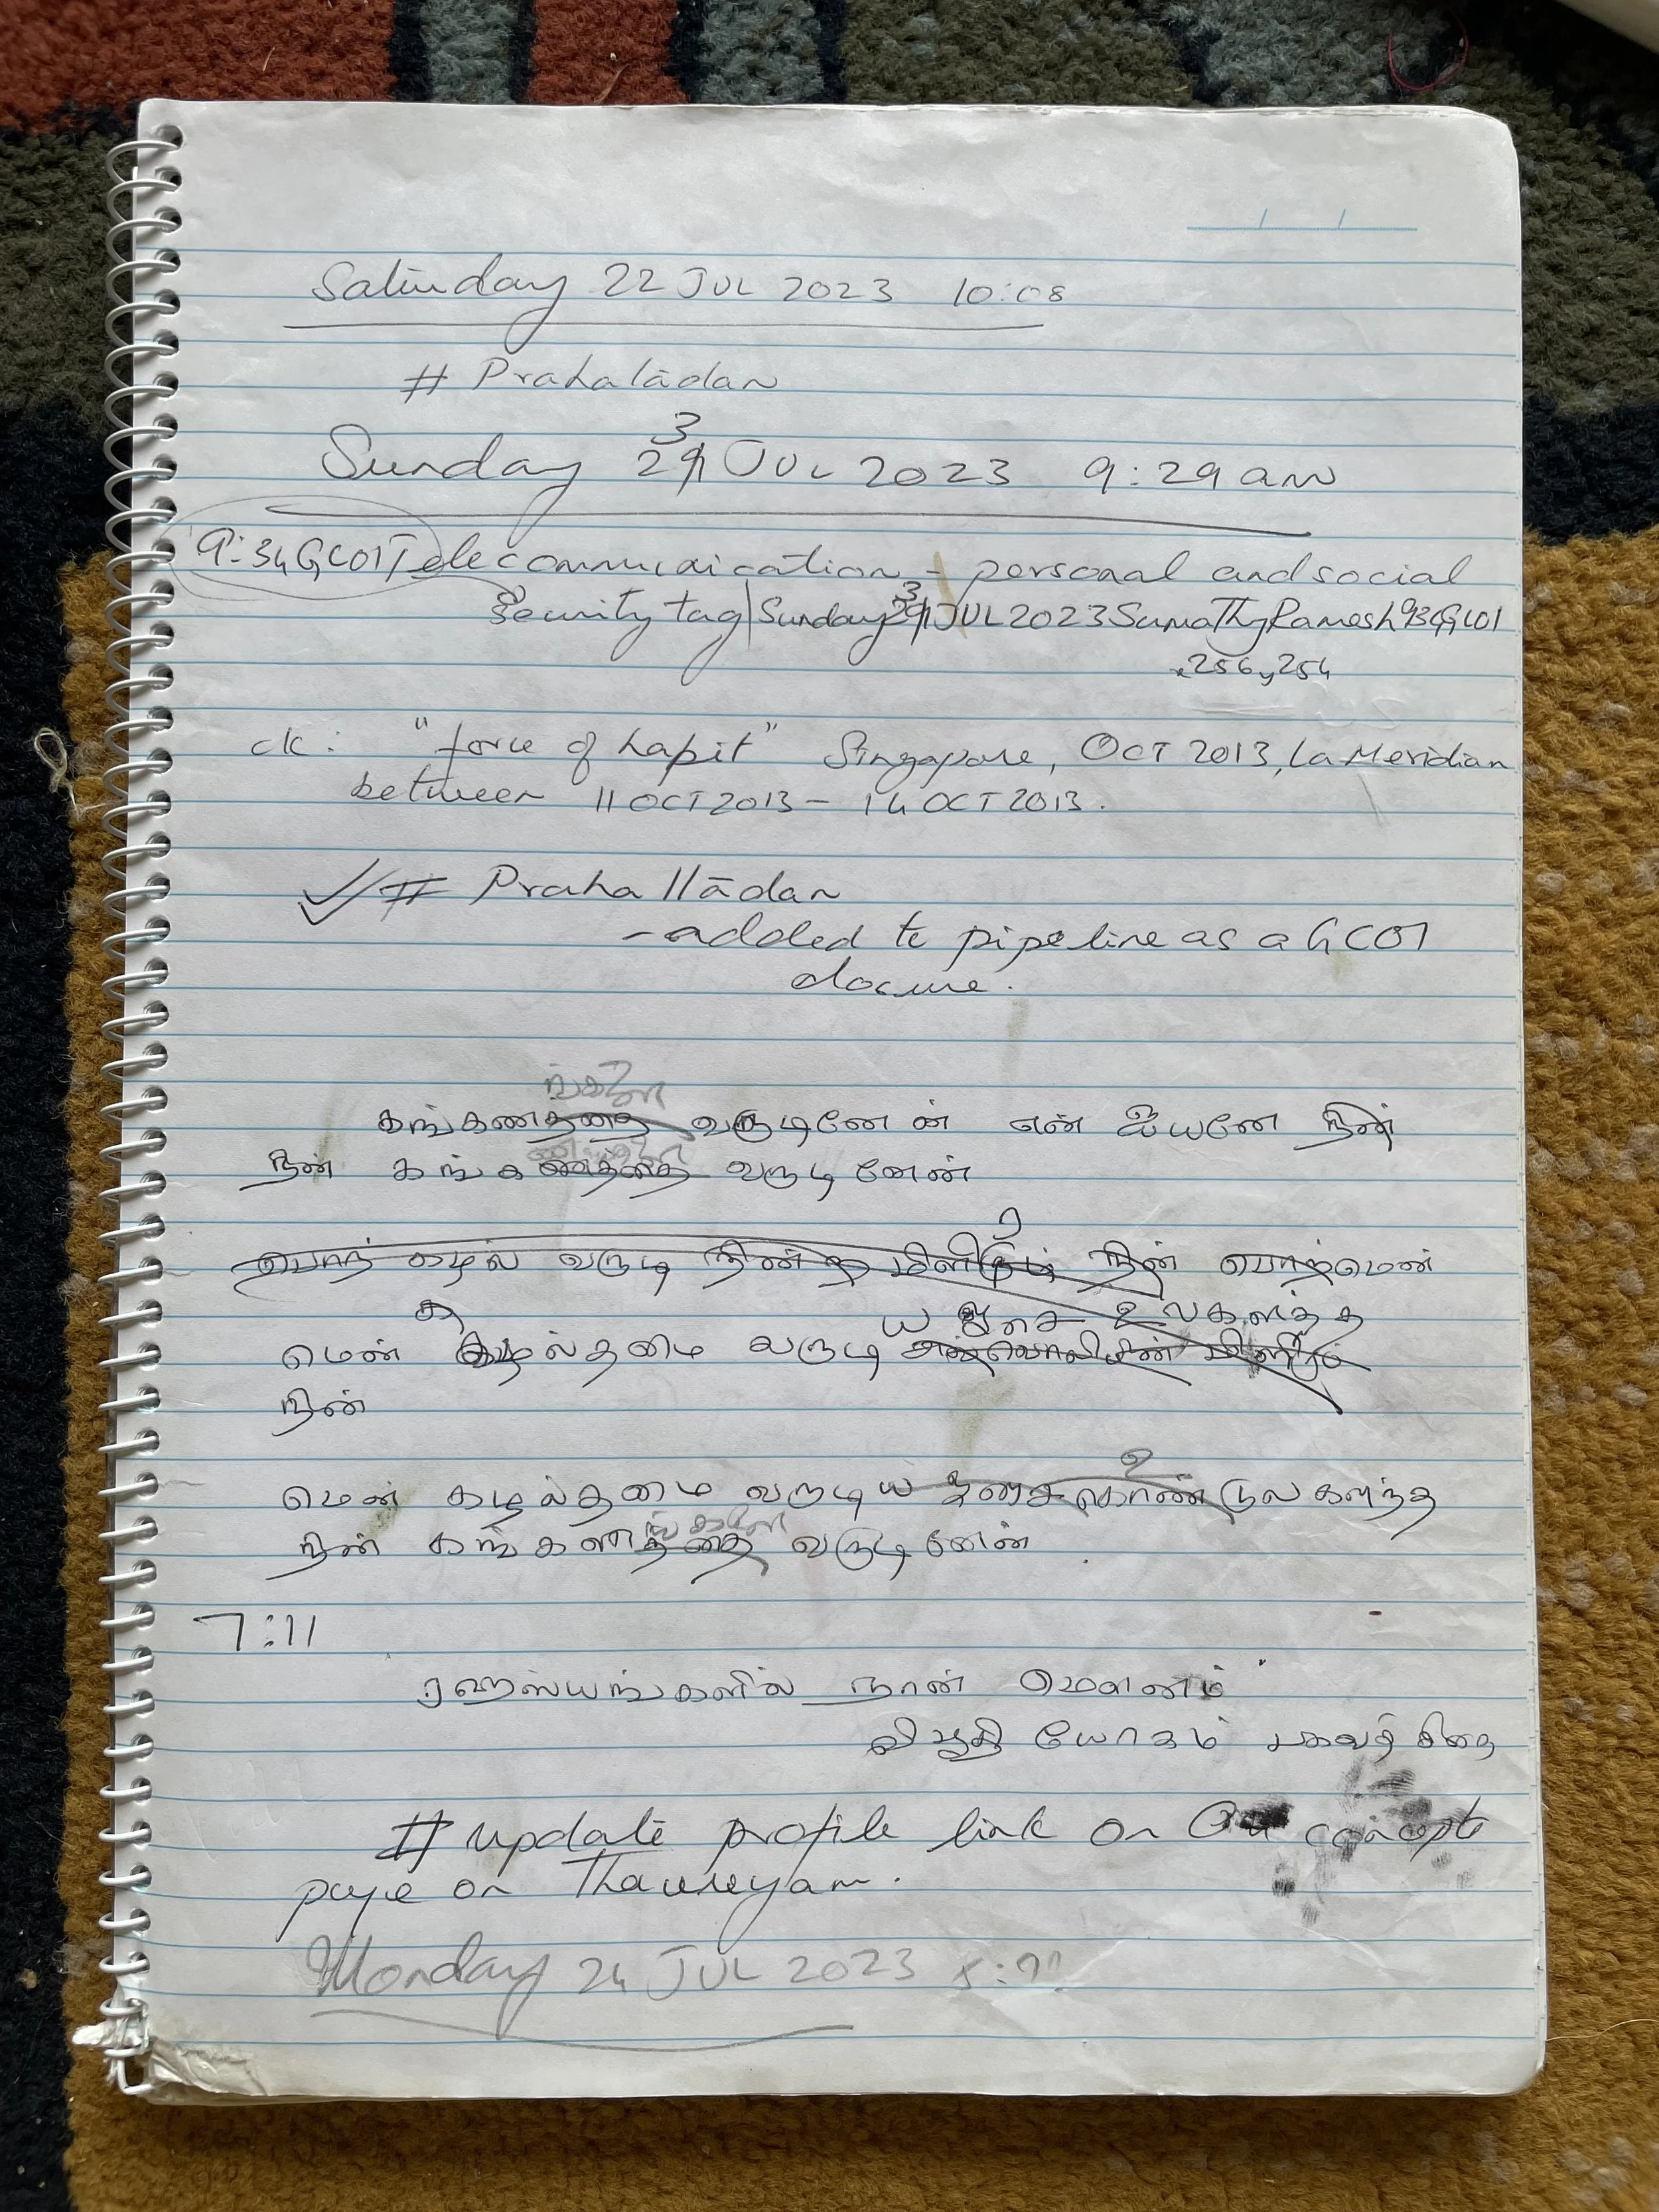 Saturday 22 JUL 2023 10:08
# Prahalādan
Sunday 23 JUL 2023 9:29 am
9:34GC01Telecommunication - personal and social
Security tag|Sunday 23 JUL 2023 SumaThyRamesh 934GC01
x256y254
ck: "force of habit" Singapore, OCT 2013, La Meridian
between 11 OCT 2013 - 14 OCT 2013.
# Prahallādan
- added to pipeline as a GC01
closure.
ங்களை
கங்கணத்தை வருடினேன் என் ஐயனே நின்
நின் கங்கணத்தை வருடினேன்
கழல் வருடி நின் நின்
ய உலகளந்த
மென் கழல்தமை வருடி
நின்
மென் கழல்தமை வருடிய உலகளந்த
ங்களை
நின் கங்கணத்தை வருடினேன்
7:11
ரஹஸ்யங்களில் நான் மௌனம்
விபூதி யோகம் பகவத் கீதை
# update profile link on concepts
page on
Monday 24 JUL 2023